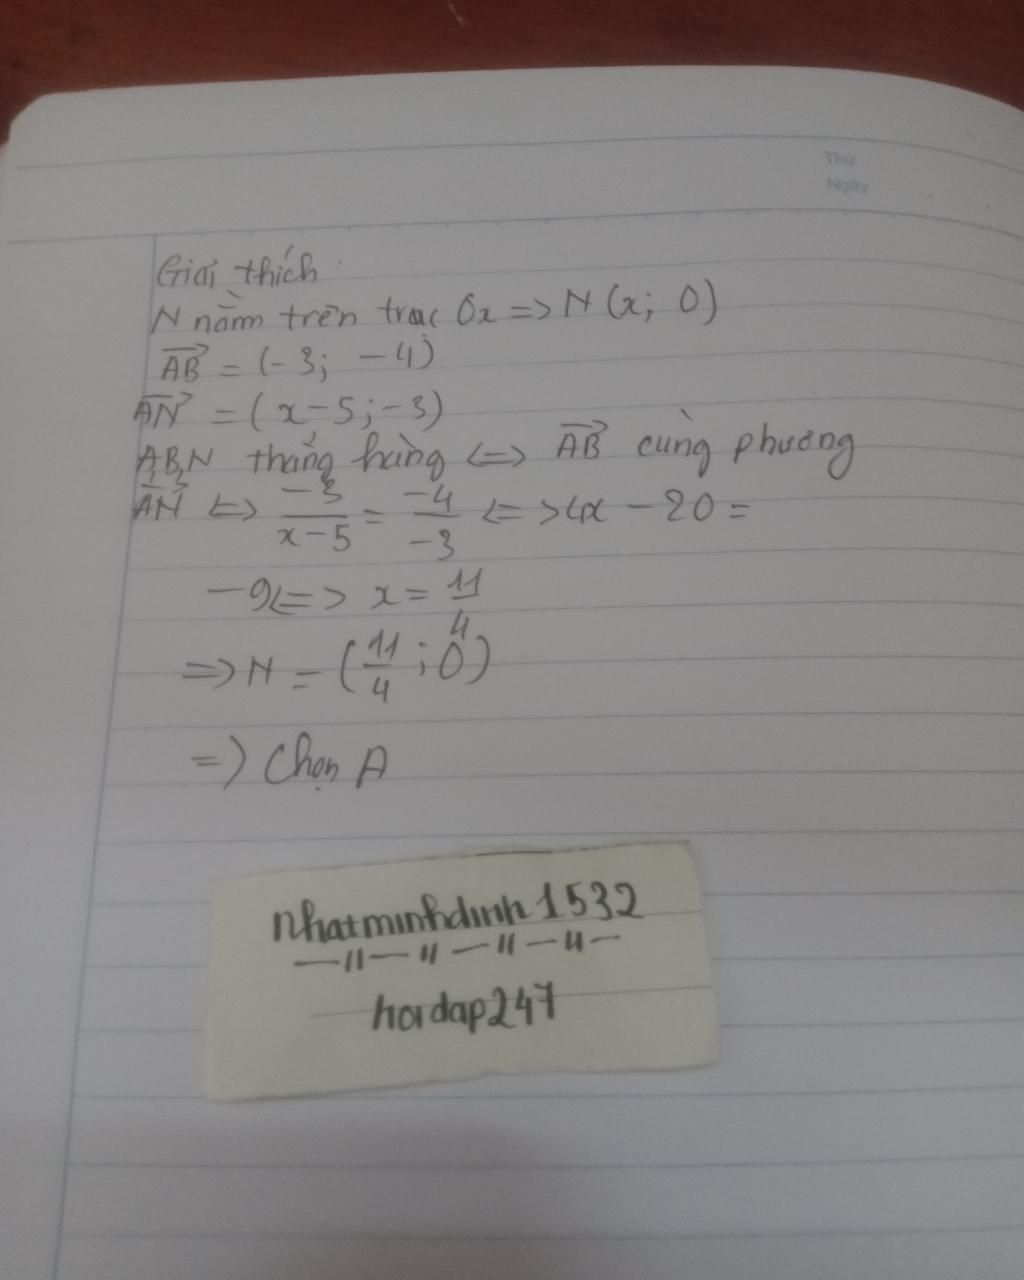 Thứ
Ngày
Giải thích:
N nằm trên trục Ox => N (x; 0)
\overrightarrow{AB} = (-3; -4)
\overrightarrow{AN} = (x-5; -3)
A,B,N thẳng hàng <=> \overrightarrow{AB} cùng phương
\overrightarrow{AN} <=> \frac{-3}{x-5} = \frac{-4}{-3} <=> 4x - 20 =
-9 <=> x = \frac{11}{4}
=> N = (\frac{11}{4}; 0)
=> Chọn A
Nhatminhdinh1532
—11— 11 —11 —11—
hoidap247